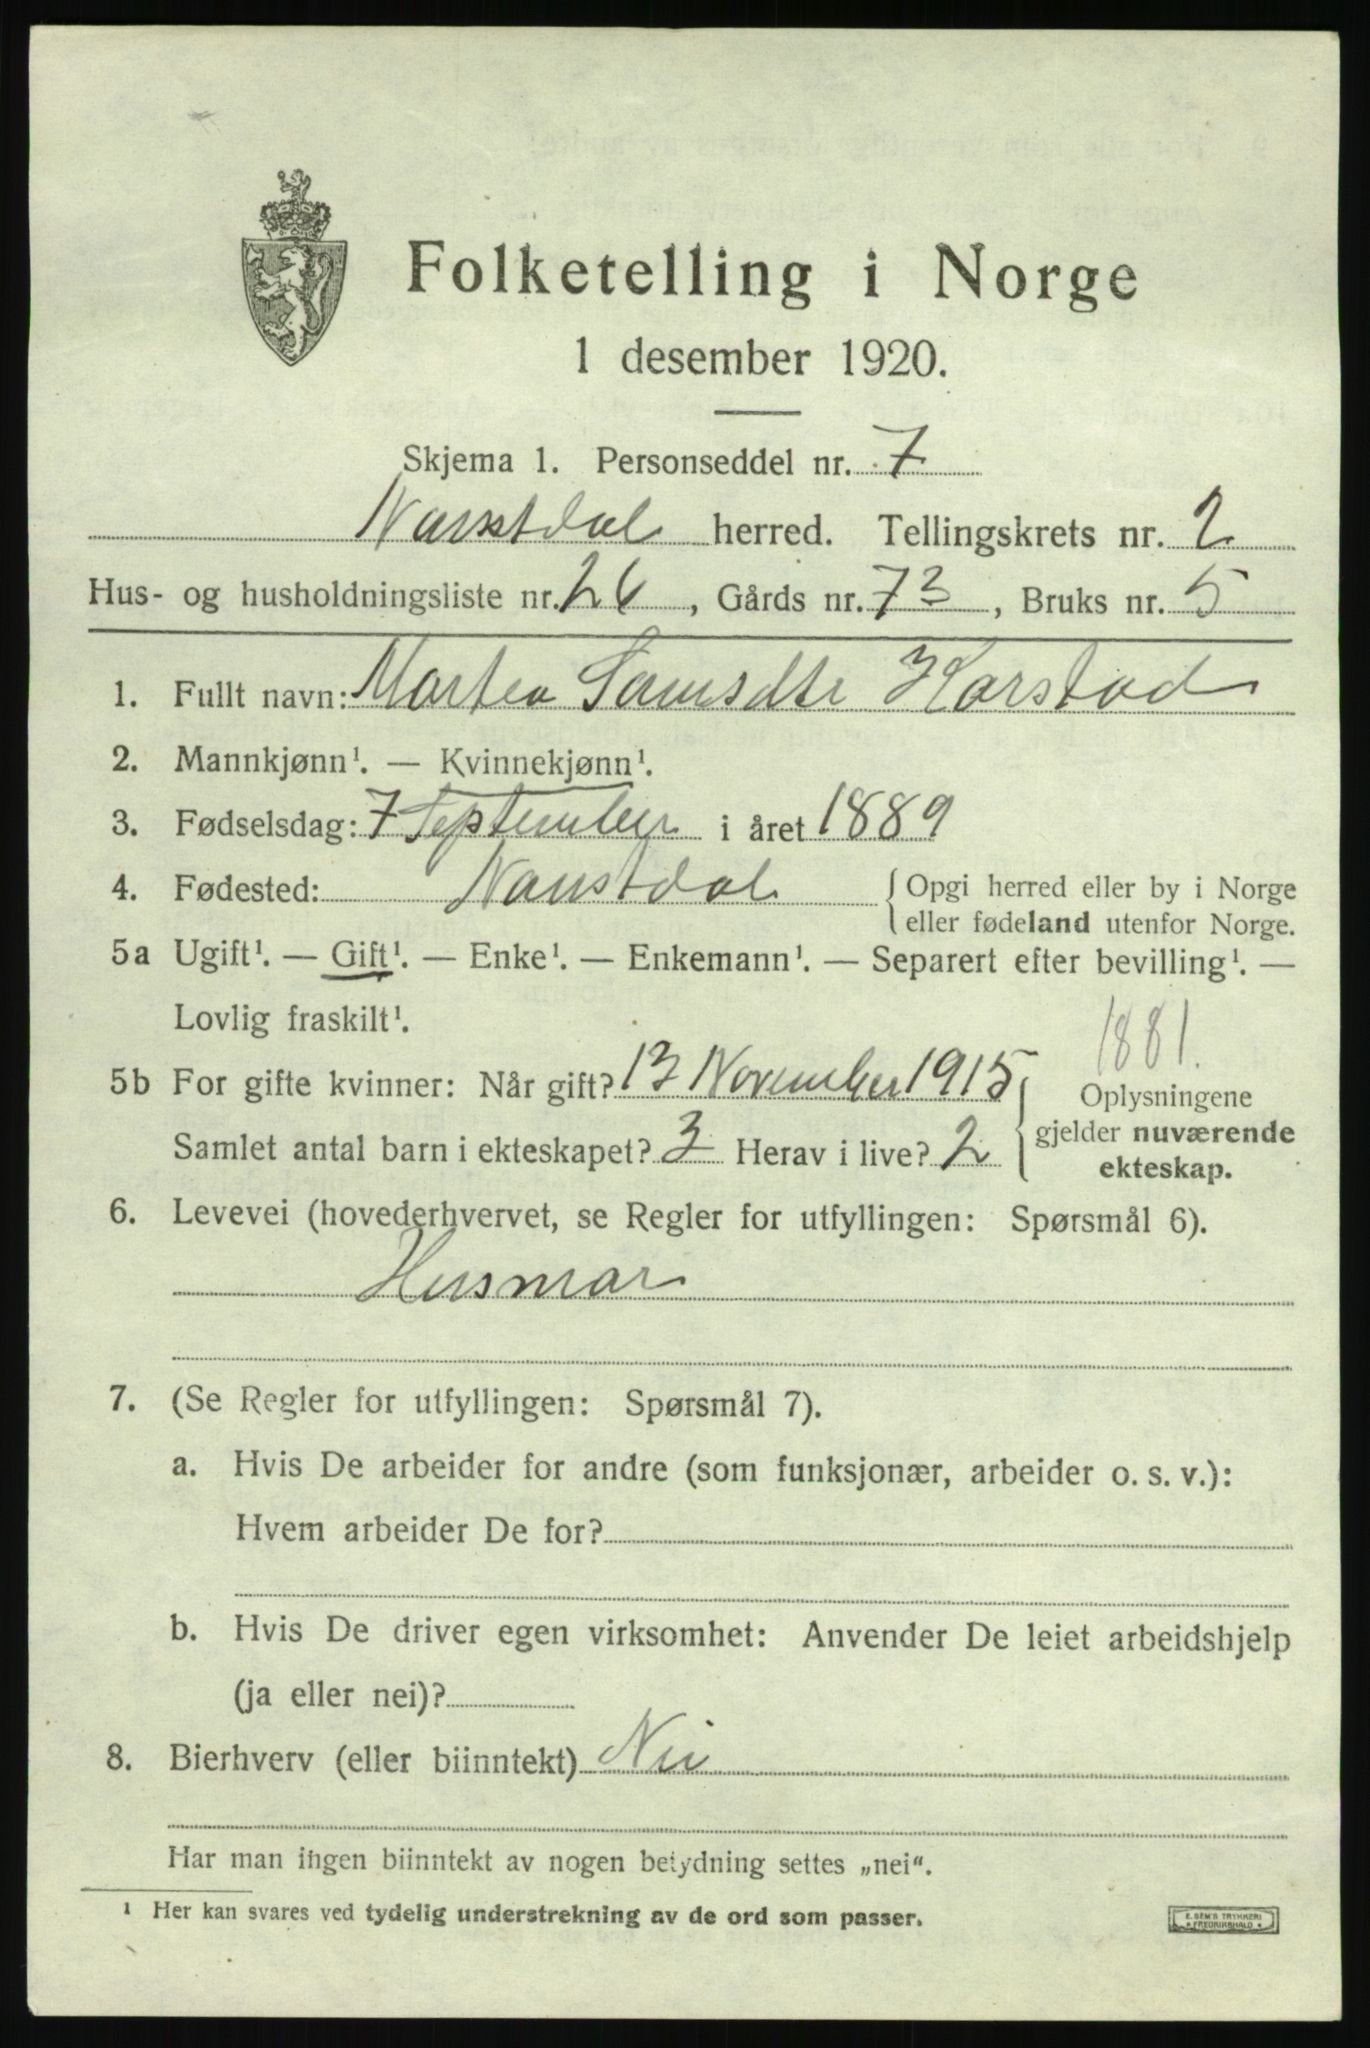 Folketelling i Norge
1 desember 1920.
Skjema 1. Personseddel nr. 7
Naustdal herred. Tellingskrets nr. 2
Hus- og husholdningsliste nr. 26, Gårds nr. 73, Bruks nr. 5
1. Fullt navn: Martea Samsdtr Karstad
2. Mannkjønn¹. — Kvinnekjønn¹.
3. Fødselsdag: 7 September i året 1889
4. Fødested: Naustdal { Opgi herred eller by i Norge
eller fødeland utenfor Norge.
5a Ugift¹. — Gift¹. — Enke¹. — Enkemann¹. — Separert efter bevilling¹. —
Lovlig fraskilt¹.
1881.
5b For gifte kvinner: Når gift? 13 November 1915 { Oplysningene
gjelder nuværende
Samlet antal barn i ekteskapet? 3 Herav i live? 2
ekteskap.
6. Levevei (hovederhvervet, se Regler for utfyllingen: Spørsmål 6).
Husmor
7. (Se Regler for utfyllingen: Spørsmål 7).
a. Hvis De arbeider for andre (som funksjonær, arbeider o. s. v.):
Hvem arbeider De for?
b. Hvis De driver egen virksomhet: Anvender De leiet arbeidshjelp
(ja eller nei)?
8. Bierhverv (eller biinntekt) Nei
Har man ingen biinntekt av nogen betydning settes „nei“.
¹ Her kan svares ved tydelig understrekning av de ord som passer.
E. SEM'S TRYKKERI
FREDRIKSHALD